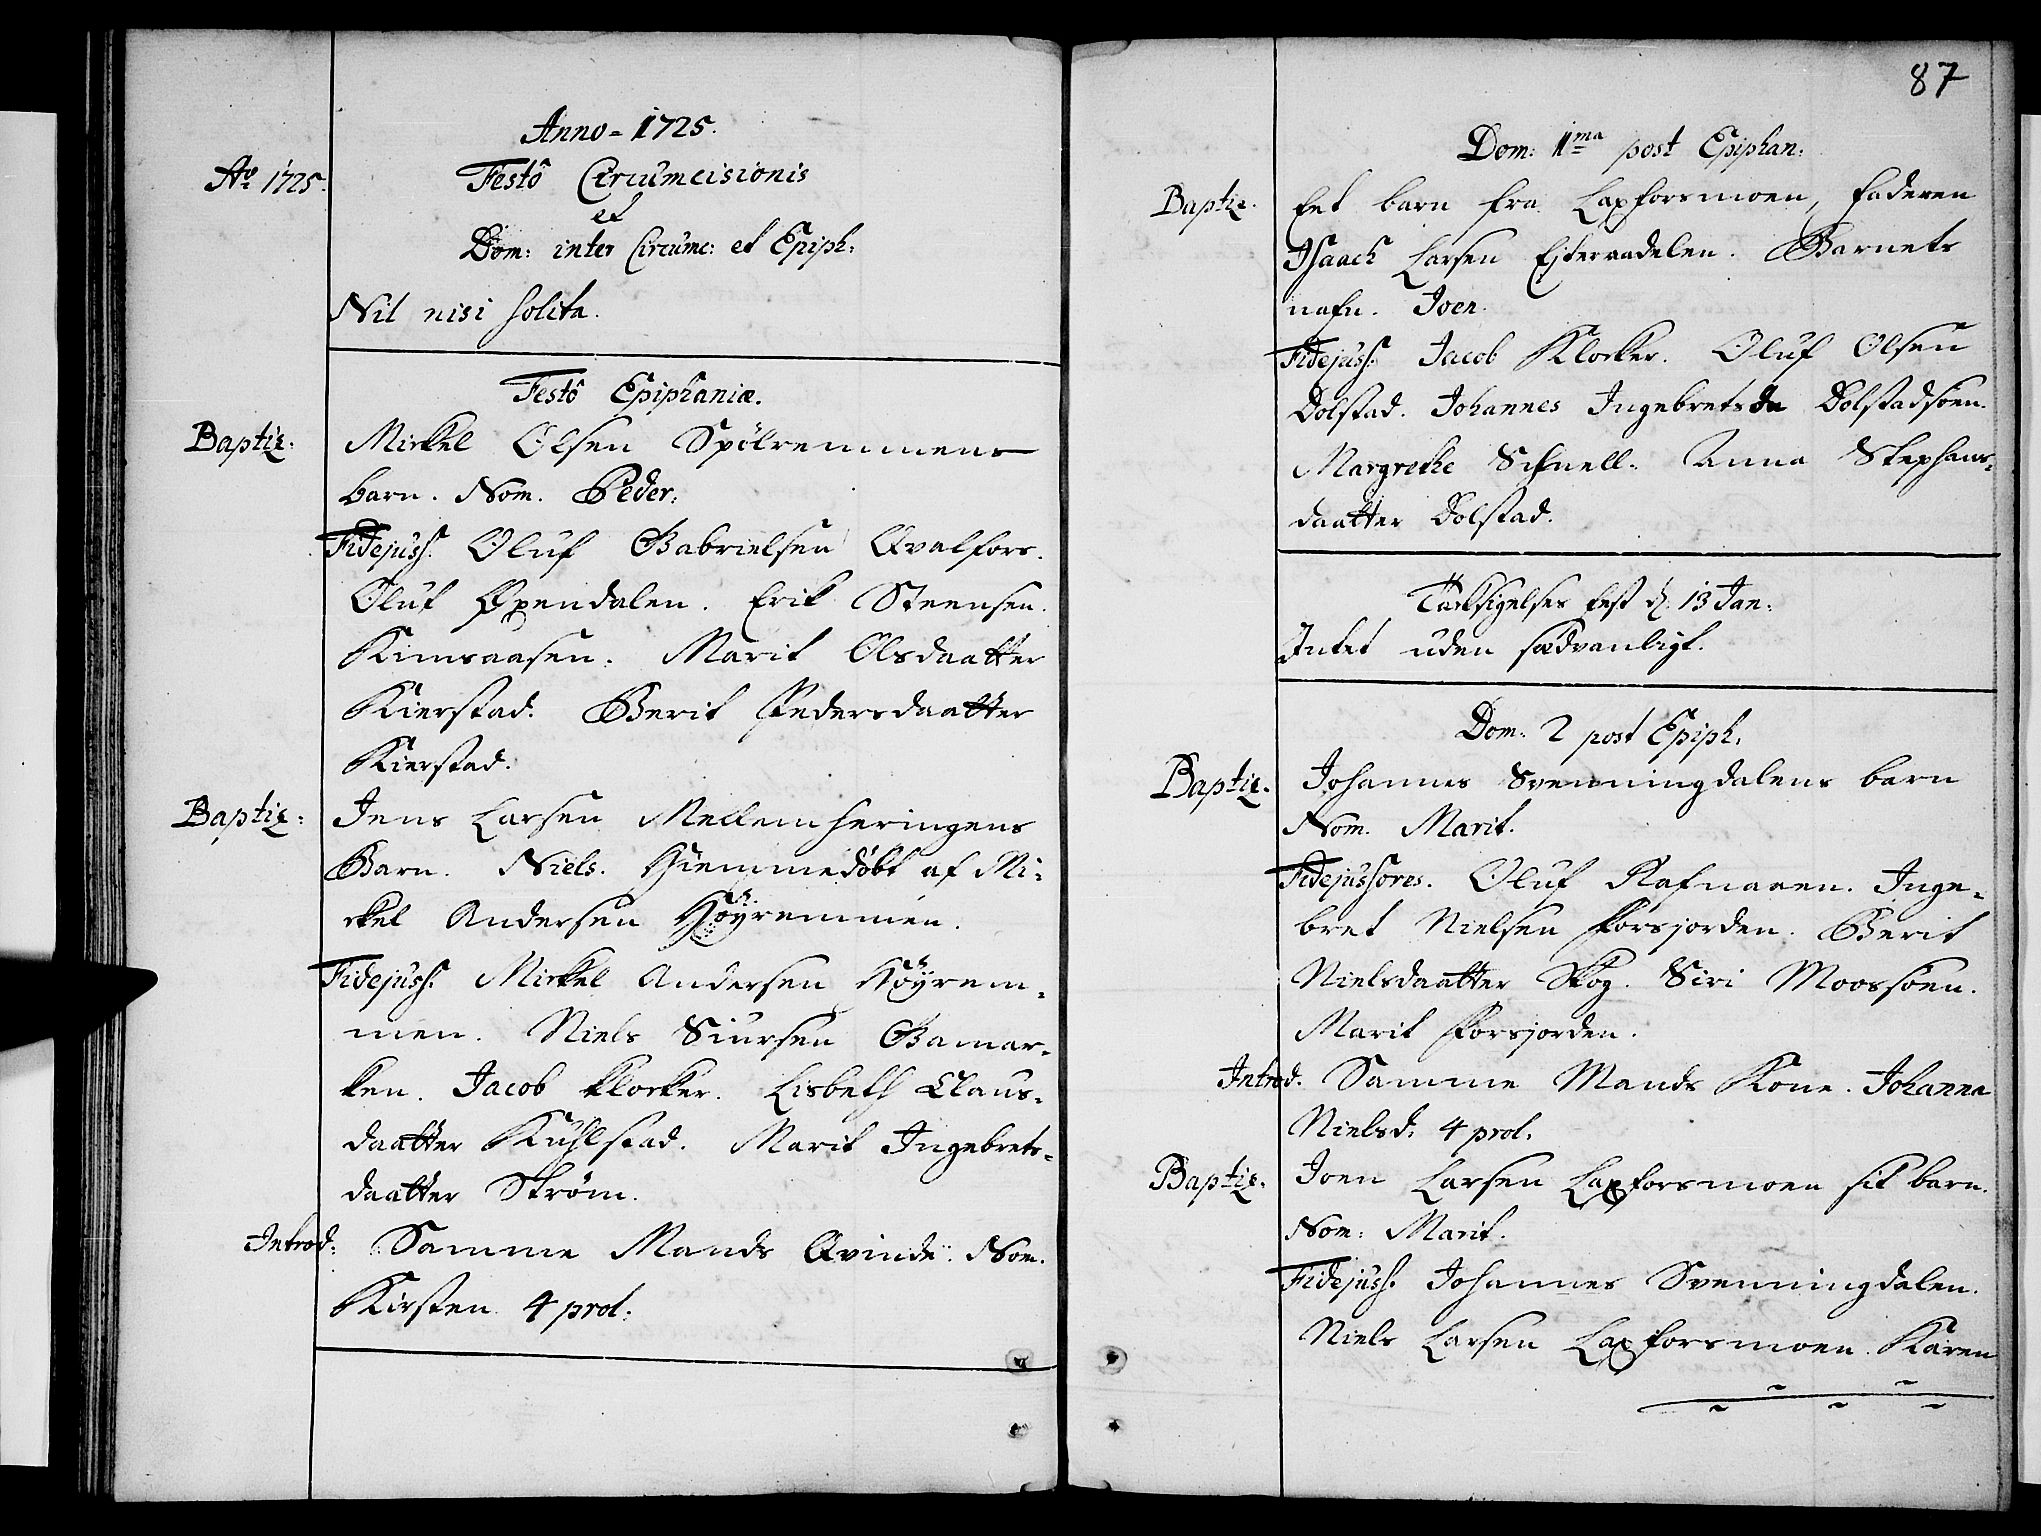 Anno - 1725.
Ao 1725.
Festô Circumcisionis
et
Dom: inter Circumc: et Epiph:
Nil nisi solita.
Festô Epiphaniæ.
Baptiz: Mickel Olsen Spölremmens
barn. Nom. Peder.
Fidejuss: Oluf Gabrielsen Qvalfors.
Oluf Øxendalen. Erik Steensen
Kimsaasen. Marit Olsdaatter
Kierstad. Berit Pedersdaatter
Kierstad.
Baptiz: Jens Larsen Mellemheringens
Barn. Niels. Hiemmedöbt af Mi-
ckel Andersen Höyremmen.
Fidejuss: Mickel Andersen Höyrem-
men. Niels Siursen Bamar-
ken. Jacob klocker. Lisbeth Claus-
daatter Kuhlstad. Marit Ingebrets-
daatter Ström.
Introd: Samme Mands Qvinde. Nom.
Kirsten 4 prol:
87
Dom: 1ma post Epiphan:
Baptiz. Eet barn fra Laxforsmoen, faderen
Isaach Larsen Estervadelen. Barnets
nafn. Joen.
Fidejuss: Jacob Klocker. Oluf Olsen
Dolstad. Johannes Ingebretsen Dolstadsoen.
Margrethe Schnell. Anna Stephans-
daatter Dolstad.
Tacksigelses fest d. 13 Jan:
Intet uden sædvanligt.
Dom: 2 post Epiph.
Baptiz. Johannes Svenningdalens barn
Nom. Marit.
Fidejussores. Oluf Rafnaaen. Inge-
bret Nielsen forsjorden. Berit
Nielsdaatter Skog. Siri Moossoen.
Marit forsjorden.
Introd. Samme Mands Kone. Johanna
Nielsd: 4 prol.
Baptiz. Joen Larsen Laxforsmoen sit barn.
Nom: Marit.
Fidejuss. Johannes Svenningdalen.
Niels Larsen Laxforsmoen. Karen